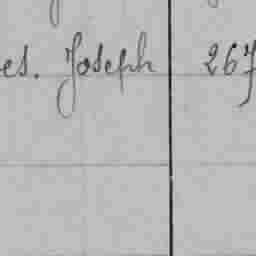 es. Joseph 267